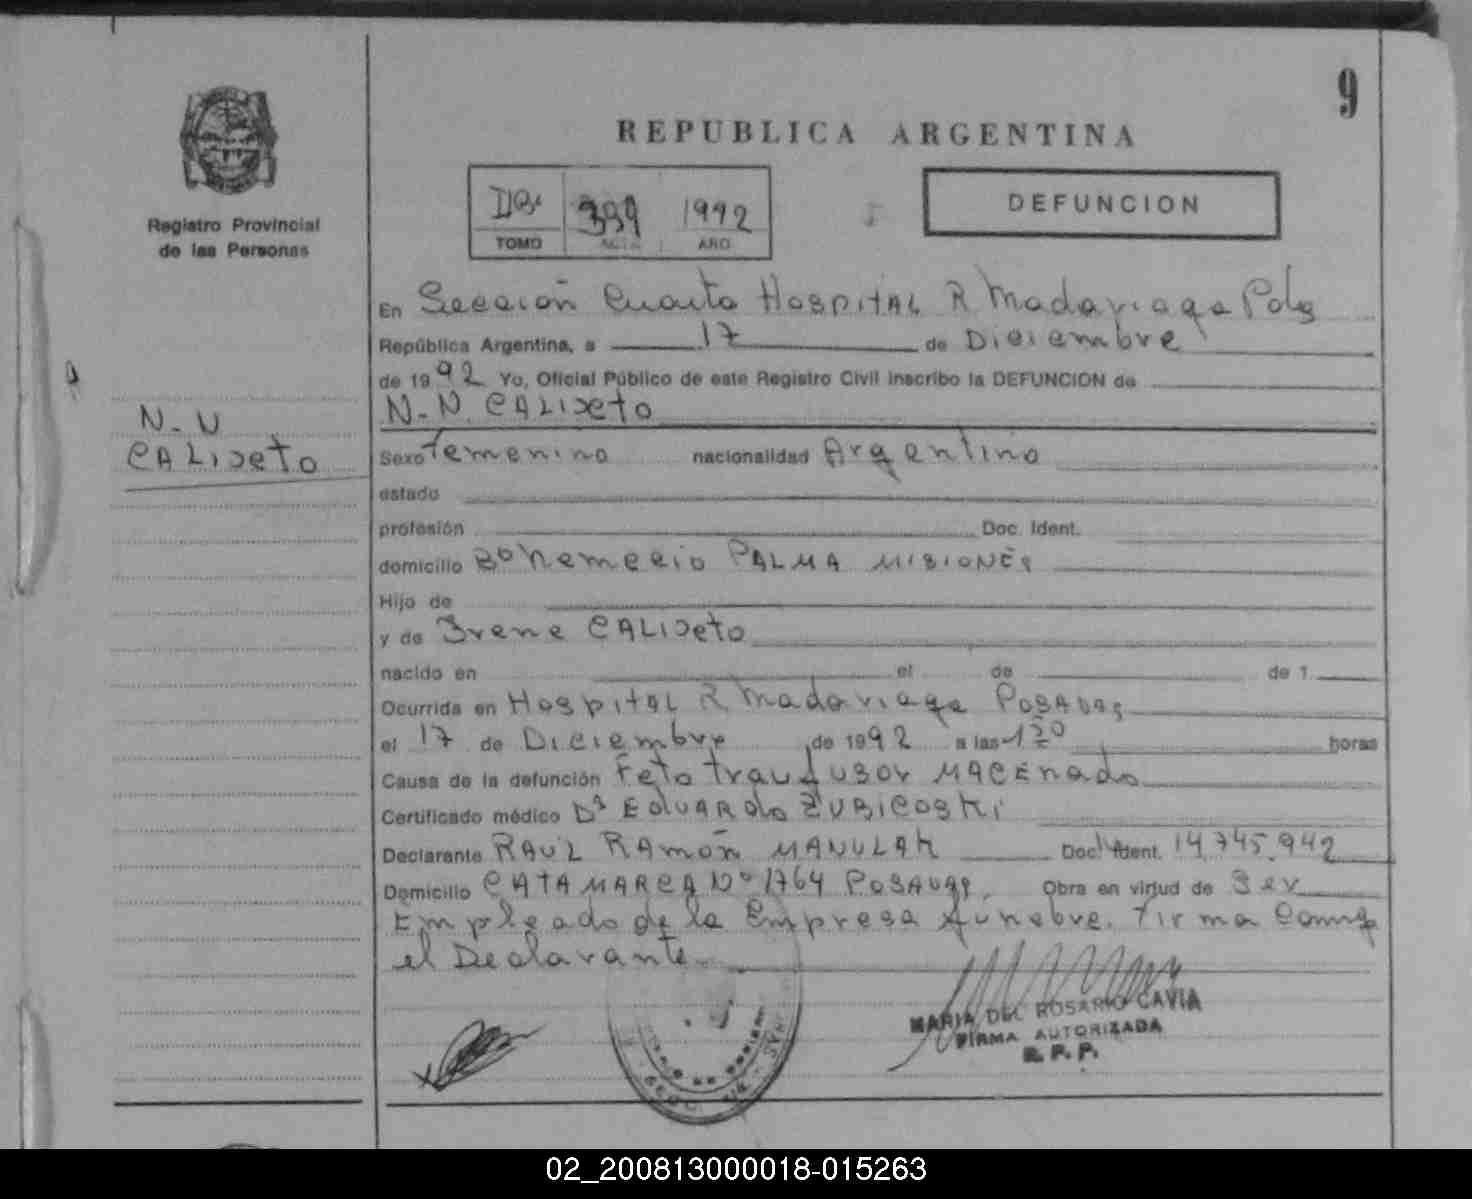 9
REPUBLICA ARGENTINA
399 1992
TOMO ACTA AÑO
DEFUNCION
Registro Provincial
de las Personas
En Sección Cuarta Hospital R Madariaga Pdas
República Argentina, a 17 de Diciembre
de 1992 Yo, Oficial Público de este Registro Civil inscribo la DEFUNCION de
N-N CALIXeto
N-N
CALIXeto
Sexo Femenino nacionalidad Argentina
estado
profesión Doc. Ident.
domicilio Bº PALMA MISIONES
Hijo de
y de Irene CALIXeto
nacido en el de de 1
Ocurrida en Hospital R Madariaga POSADAS
el 17 de Diciembre de 1992 a las horas
Causa de la defunción Feto MACERADO
Certificado médico EDUARDO
Declarante RAUL RAMÓN Doc. Ident. 14.745.942
Domicilio CATAMARCA Nº 1764 POSADAS. Obra en virtud de Ser
Empleado de la Empresa Funebre. Firma Conmigo
el Declarante
MARIA DEL ROSARIO CAVIA
FIRMA AUTORIZADA
R.P.P.
02_200813000018-015263